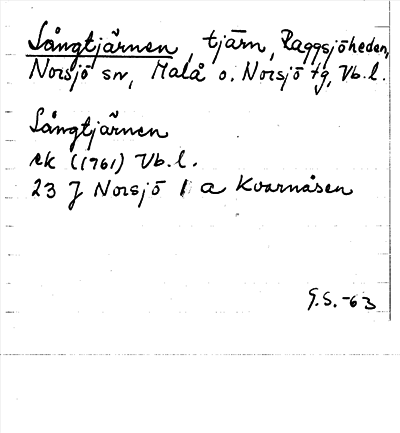 Långtjärnen, tjärn, Raggsjöheden,
Norsjö sn, Malå o. Norsjö tg, Vb.l.
Långtjärnen
ek (1761) Vb.l.
23 J Norsjö 1 a Kvarnåsen
G.S. -63